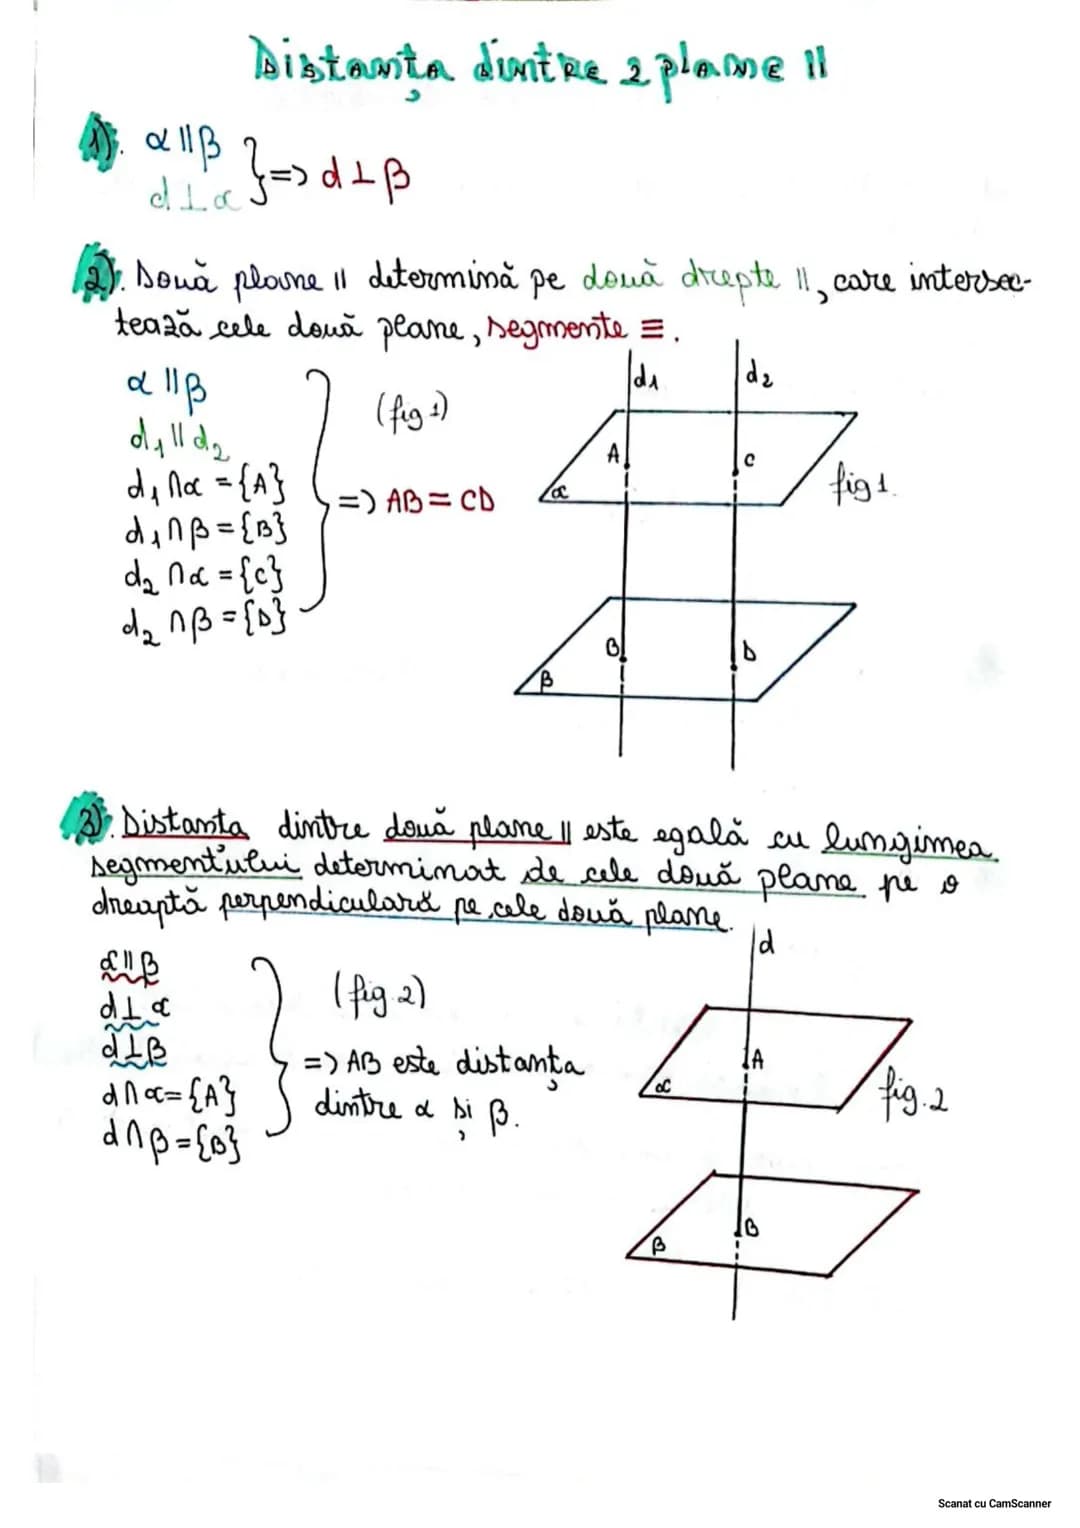 Distanța dintre 2 plane ||
1). α || β
d ⊥ α } => d ⊥ β
2). Două plane || determină pe două drepte ||, care intersec-
tează cele două plane, segmente ≡.
α || β
d₁ || d₂
d₁ ∩ α = {A}
d₁ ∩ β = {B}
d₂ ∩ α = {C}
d₂ ∩ β = {D}
(fig 1)
=> AB = CD
d₁ d₂
A C
α
fig 1.
B D
β
3). Distanta dintre două plane || este egală cu lungimea
segmentului determinat de cele două plane pe o
dreaptă perpendiculară pe cele două plane.
α || β
d ⊥ α
d ⊥ β
d ∩ α = {A}
d ∩ β = {B}
(fig. 2)
=> AB este distanța
dintre α și β.
d
A
α
fig. 2
B
β
Scanat cu CamScanner